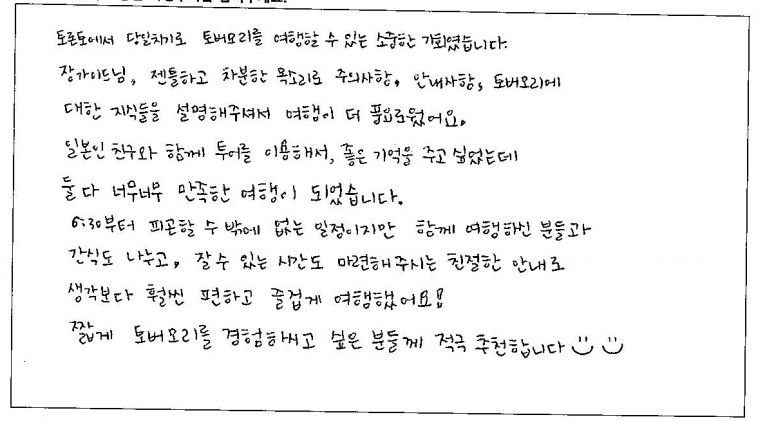 토론토에서 당일치기로 토버모리를 여행할 수 있는 소중한 기회였습니다.
장가이드님, 젠틀하고 차분한 목소리로 주의사항, 안내사항, 토버모리에
대한 지식들을 설명해주셔서 여행이 더 풍요로웠어요.
일본인 친구와 함께 투어를 이용해서, 좋은 기억을 주고 싶었는데
둘 다 너무너무 만족한 여행이 되었습니다.
6:30부터 피곤할 수 밖에 없는 일정이지만 함께 여행하신 분들과
간식도 나누고, 잘 수 있는 시간도 마련해주시는 친절한 안내로
생각보다 훨씬 편하고 즐겁게 여행했어요!!
짧게 토버모리를 경험하시고 싶은 분들께 적극 추천합니다